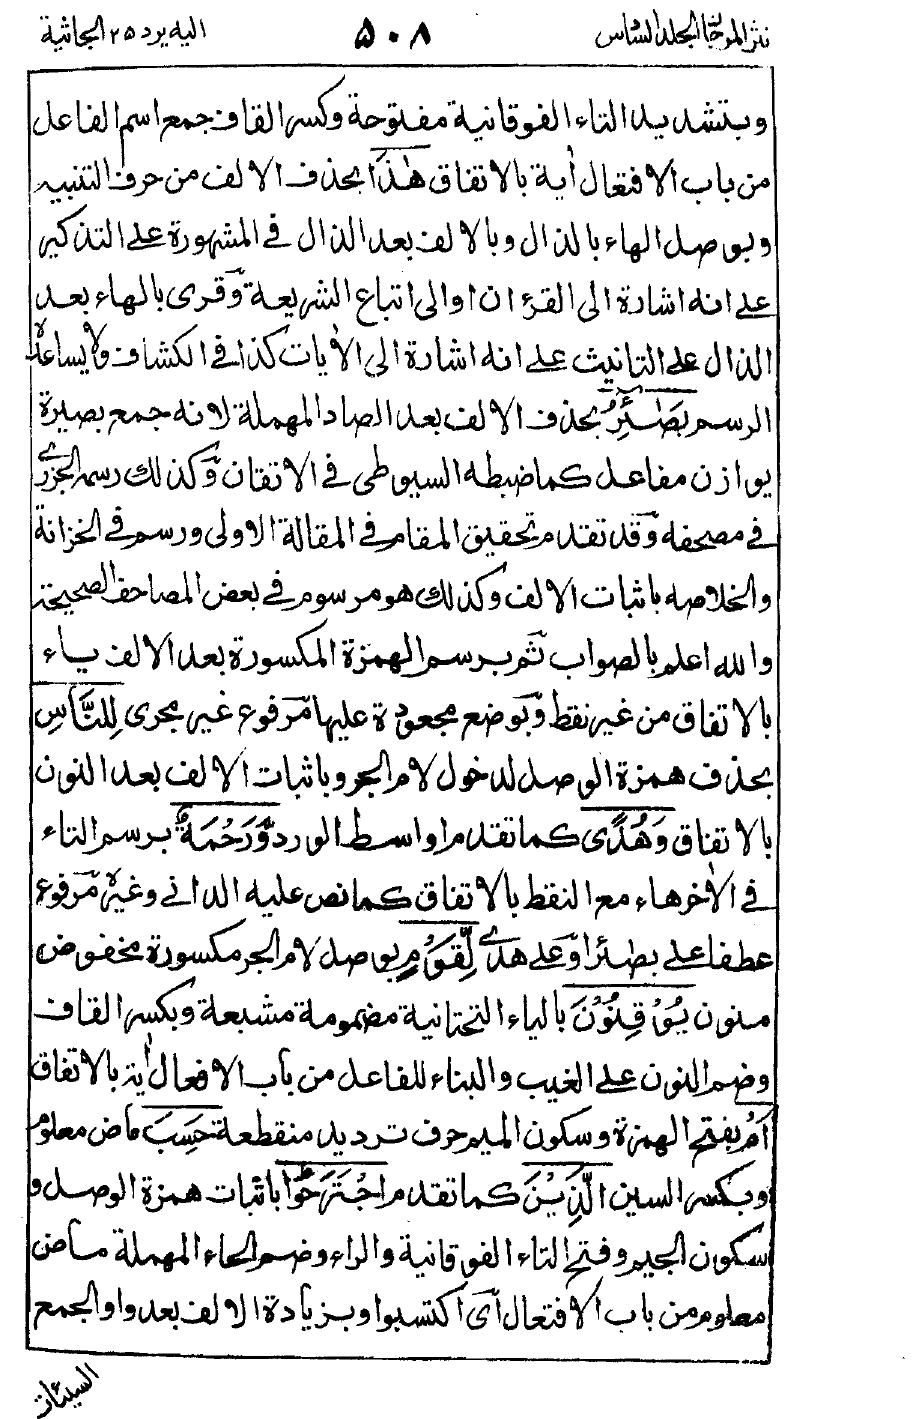 نثر المرجان الجلد السادس ٥٠٨ اليه يرد ٢٥ الجاثية
وبتشديد التاء الفوقانية مفتوحة وكسر القاف جمع اسم الفاعل
من باب الافتعال اٰية بالاتفاق هٰذَا بحذف الالف من حرف التنبيه
وبوصل الهاء بالذال وبالالف بعد الذال في المشهورة على التذكير
على انه اشارة الى القرءان او الى اتباع الشريعة وَقرى بالهاء بعد
الذال على التانيث على انه اشارة الى الاٰيات كذا في الكشاف ولا يساعده
الرسم بَصَٰٓئِرُ بحذف الالف بعد الصاد المهملة لانه جمع بصيرة
يوازن مفاعل كما ضبطه السيوطي في الاتقان وَكذلك رسمه الجزري
في مصحفه وَقد تقدم تحقيق المقام في المقالة الاولى ورسم في الخزانة
والخلاصه باثبات الالف وكذلك هو مرسوم في بعض المصاحف الصحيحة
والله اعلم بالصواب ثم برسم الهمزة المكسورة بعد الالف ياء
بالاتفاق من غير نقط وَبوضع مجعودة عليها مرفوع غير مجرى لِلنَّاسِ
بحذف همزة الوصل لدخول لام الجر وباثبات الالف بعد النون
بالاتفاق وَهُدًى كما تقدم اواسط الورد وَّرَحْمَةٌ برسم التاء
في الاٰخر هاء مع النقط بالاتفاق كما نص عليه الداني وغيره مرفوع
عطفا على بصائر او على هدى لِّقَوْمٍ بوصل لام الجر مكسورة مخفوض
منون يُوْقِنُوْنَ بالياء التحتانية مضمومة مشبعة وبكسر القاف
وضم النون على الغيب والبناء للفاعل من باب الافعال اٰية بالاتفاق
اَمْ بفتح الهمزة وسكون الميم حرف ترديد منقطعة حَسِبَ ماض معلوم
وبكسر السين الَّذِيْنَ كما تقدم اجْتَرَحُوْا باثبات همزة الوصل و
سكون الجيم وفتح التاء الفوقانية والراء وضم الحاء المهملة ماض
معلوم من باب الافتعال اَى اكتسبوا وبزيادة الالف بعد واو الجمع
السيئات